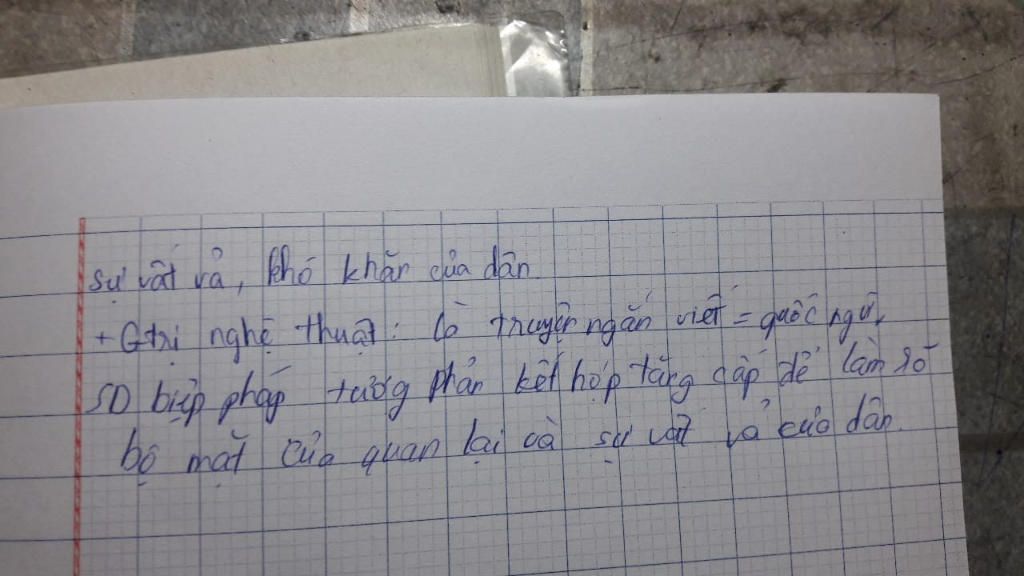 sự vất vả, khó khăn của dân.
+ Gtrị nghệ thuật: là truyện ngắn viết = quốc ngữ,
SD biện pháp tương phản kết hợp tăng cấp để làm rõ
bộ mặt của quan lại và sự vất vả của dân.